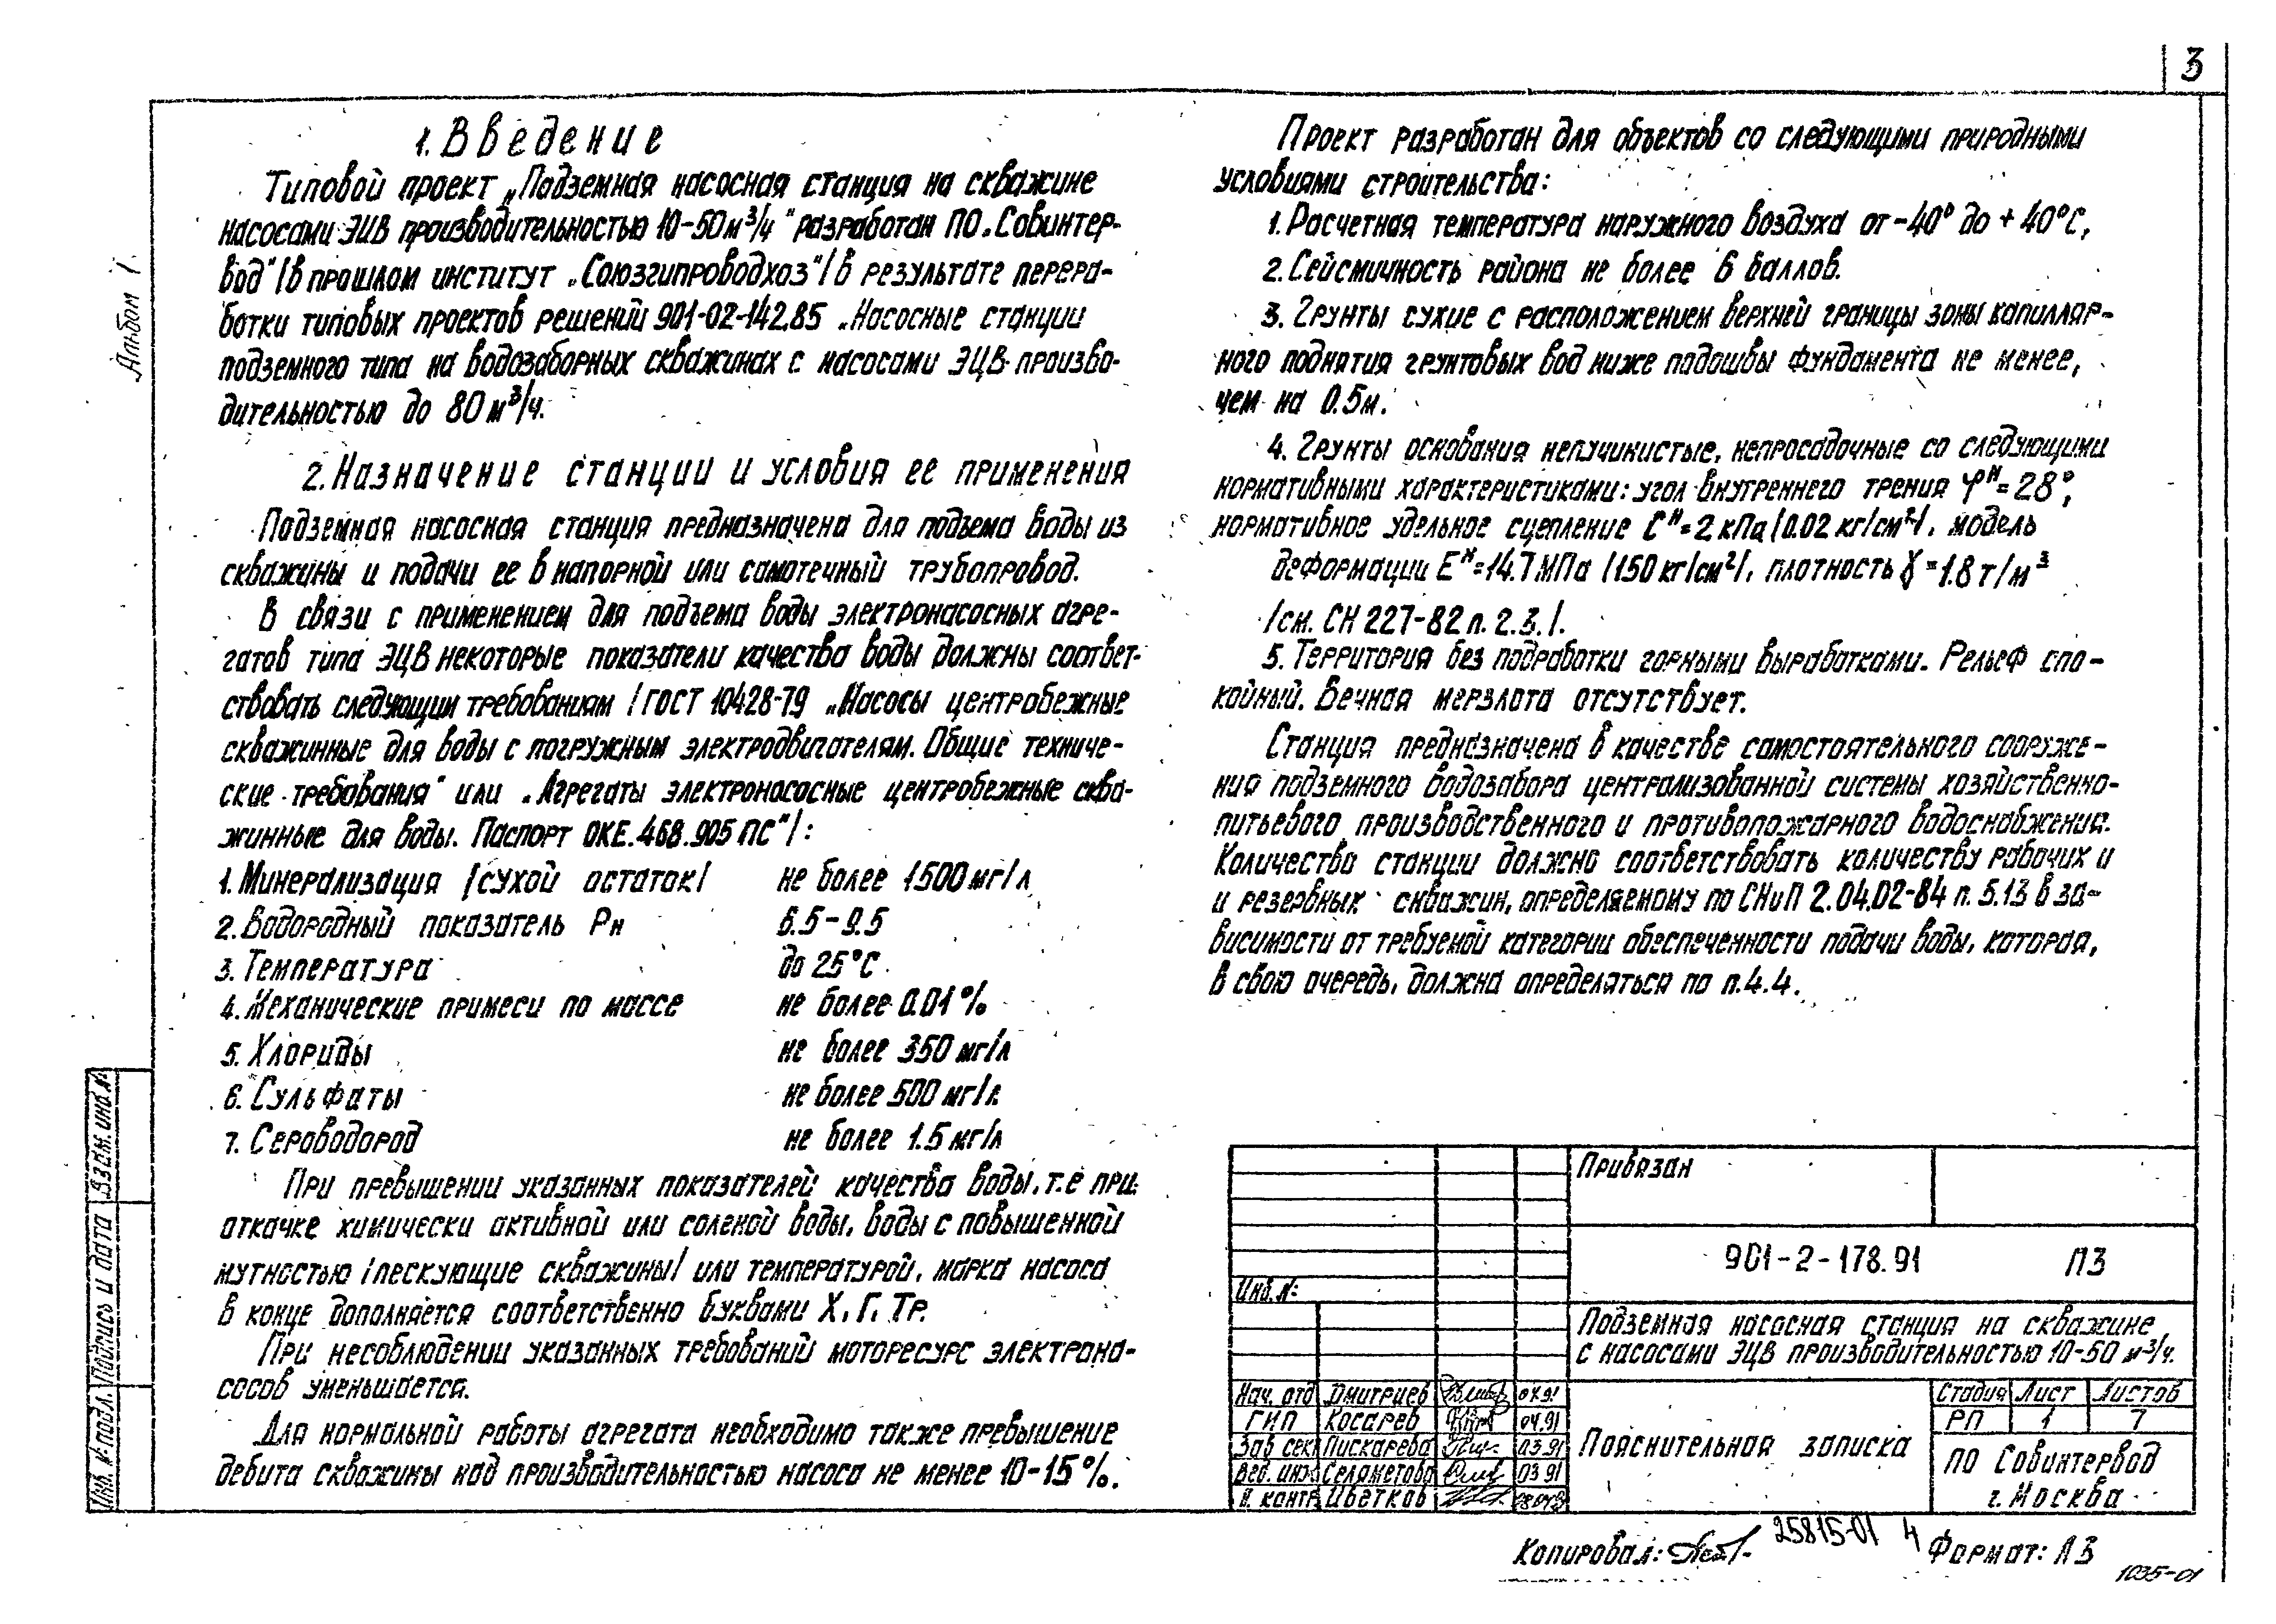 3
Альбом 1
1. Введение
Типовой проект „Подземная насосная станция на скважине
насосами ЭЦВ производительностью 10-50 м³/ч" разработан ПО „Совинтер-
вод" /в прошлом институт „Союзгипроводхоз"/ в результате перера-
ботки типовых проектов решений 901-02-142.85 „Насосные станции
подземного типа на водозаборных скважинах с насосами ЭЦВ произво-
дительностью до 80 м³/ч.
2. Назначение станции и условия ее применения
Подземная насосная станция предназначена для подъема воды из
скважины и подачи ее в напорной или самотечный трубопровод.
В связи с применением для подъема воды электронасосных агре-
гатов типа ЭЦВ некоторые показатели качества воды должны соответ-
ствовать следующим требованиям /ГОСТ 10428-79 „Насосы центробежные
скважинные для воды с погружным электродвигателям. Общие техниче-
ские требования" или „Агрегаты электронасосные центробежные сква-
жинные для воды. Паспорт ОКЕ.468.905 ПС"/:
1. Минерализация /сухой остаток/ не более 1500 мг/л
2. Водородный показатель Рн 6.5-9.5
3. Температура до 25°С
4. Механические примеси по массе не более 0.01%
5. Хлориды не более 350 мг/л
6. Сульфаты не более 500 мг/л
7. Сероводород не более 1.5 мг/л
При превышении указанных показателей качества воды, т.е при
откачке химически активной или соленой воды, воды с повышенной
мутностью /пескующие скважины/ или температурой, марка насоса
в конце дополняется соответственно буквами Х, Г, Тр.
При несоблюдении указанных требований моторесурс электрона-
сосов уменьшается.
Для нормальной работы агрегата необходимо также превышение
дебита скважины над производительностью насоса не менее 10-15%.
Проект разработан для объектов со следующими природными
условиями строительства:
1. Расчетная температура наружного воздуха от -40° до +40°С,
2. Сейсмичность района не более 6 баллов.
3. Грунты сухие с расположением верхней границы зоны капилляр-
ного поднятия грунтовых вод ниже подошвы фундамента не менее,
чем на 0.5м.
4. Грунты основания непучинистые, непросадочные со следующими
нормативными характеристиками: угол внутреннего трения φᴴ=28°,
нормативное удельное сцепление Сᴴ=2 кПа /0.02 кг/см²/, модель
деформации Еᴴ=14.7 МПа /150 кг/см²/, плотность γ=1.8 т/м³
/см. СН 227-82 п. 2.3./.
5. Территория без подработки горными выработками. Рельеф спо-
койный. Вечная мерзлота отсутствует.
Станция предназначена в качестве самостоятельного сооруже-
ния подземного водозабора централизованной системы хозяйственно-
питьевого, производственного и противопожарного водоснабжения.
Количество станции должно соответствовать количеству рабочих и
и резервных скважин, определяемому по СНиП 2.04.02-84 п. 5.13 в за-
висимости от требуемой категории обеспеченности подачи воды, которая,
в свою очередь, должна определяться по п.4.4.
Взам. инв. №
Подпись и дата
Инв. № подл.
Привязан
Инв. №
901-2-178.91 ПЗ
Подземная насосная станция на скважине
с насосами ЭЦВ производительностью 10-50 м³/ч.
Нач. отд Дмитриев 04.91
ГИП Косарев 04.91
Зав сек Пискарева 03.91
Вед. инж Селяметова 03 91
Н. контр Цветков
Пояснительная записка
Стадия Лист Листов
РП 1 7
ПО Совинтервод
г. Москва
Копировал: 25815-01 4 Формат: А3
1035-01